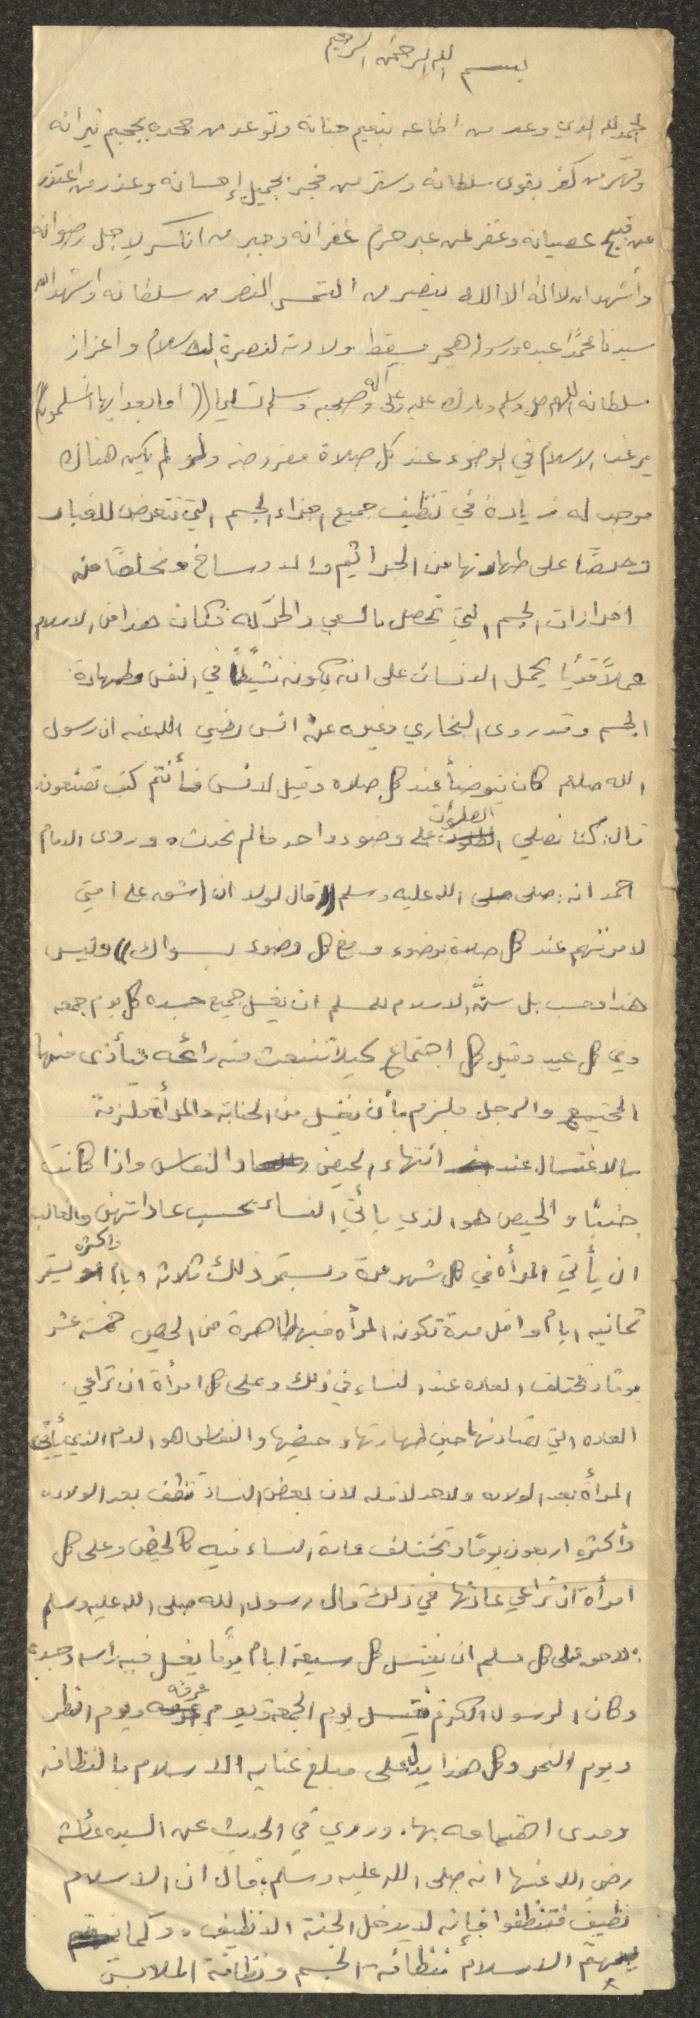 بسم الله الرحمن الرحيم
الحمد لله الذي وعد من اطاعه بنعيم جنانه وتوعد من جحده بجحيم نيرانه
وقهر من كفر بقوى سلطانه وستر من فجر بجميل إحسانه وعذر من اعتذر
عن قبيح عصيانه وغفر لمن عبر حرم غفرانه وجبر من انكسر لاجل رضوانه
وأشهد ان لا اله الا الله ينصر من التمس النصر من سلطانه واشهد ان
سيدنا محمدًا عبده ورسوله هجر مسقط ولادته لنصرة الاسلام واعزاز
سلطانه اللهم صل وسلم وبارك عليه وعلى آله وصحبه وسلم تسليما ((اما بعد ايها المسلمون))
يرغب الاسلام في الوضوء عند كل صلاة مفروضه ولو لم يكن هناك
موجب له زيادة في تنظيف جميع اجزاء الجسم التي تتعرض للغبار
وحرصًا على طهارتها من الجراثيم والاوساخ وتخلصًا من
افرازات الجسم التي تحصل بالسعي والحركه فكان هذا من الاسلام
عملاً قويا يحمل الانسان على ان يكون نشيطًا في النفس وطهارة
الجسم وقد روى البخاري وغيره عن انس رضي الله عنه ان رسول
الله صلعم كان يتوضأ عند كل صلاه وقيل لانس فأنتم كيف تصنعون
قال: كنا نصلي الصلوات على وضوء واحد مالم نحدث، وروى الامام
احمد انه: صلى الله عليه وسلم ((قال لولا ان اشق على امتي
لامرتهم عند كل صلاة بوضوء ومع كل وضوء بسواك)) وليس
هذا وحسب بل سنَّ الاسلام للمسلم ان يغسل جميع جسده كل يوم جمعه
وفي كل عيد وقبل كل اجتماع كيلا تنبعث منه رائحه يتأذى منها
المجتمع والرجل ملزم بأن يغسل من الجنابه والمرأة ملزمة
بالاغتسال عند انتهاء الحيض والنفاس واذا كانت
جنبًا والحيض هو الذي يأتي النساء بحسب عاداتهن والغالب
ان يأتي المرأه في كل شهر مرة ويستمر ذلك ثلاثه ايام واكثره
ثمانيه ايام واقل مدة تكون المرأه فيها طاهرة من الحيض خمسة عشر
يومًا وتختلف العاده عند النساء في ذلك وعلى كل امرأة ان تراعي
العاده التي تعتادها حين طهارتها وحيضها والنفاس هو الدم الذي يأتي
المرأه بعد الولاده ولا حد لاقله لان بعض النساء تنظف بعد الولاده
وأكثره اربعون يومًا وتختلف عادة النساء فيه كالحيض وعلى كل
امرأة ان تراعي عادتها في ذلك قال رسول الله صلى الله عليه وسلم
حق على كل مسلم ان يغتسل كل سبعة ايام يومًا يغسل فيه راسه وجسده
وكان الرسول الكريم يغتسل يوم الجمعة ويوم عرفه ويوم الفطر
ويوم النحر وكل هذا يدل على مبلغ عنايه الاسلام بالنظافه
ومدى اهتمامه بها. وروي في الحديث عن السيده عائشه
رضي الله عنها انه صلى الله عليه وسلم: قال ان الاسلام
نظيف فتنظفوا فإنه لا يدخل الجنة الا نظيف، وكما
يهتم الاسلام بنظافة الجسم ونظافة الملابس